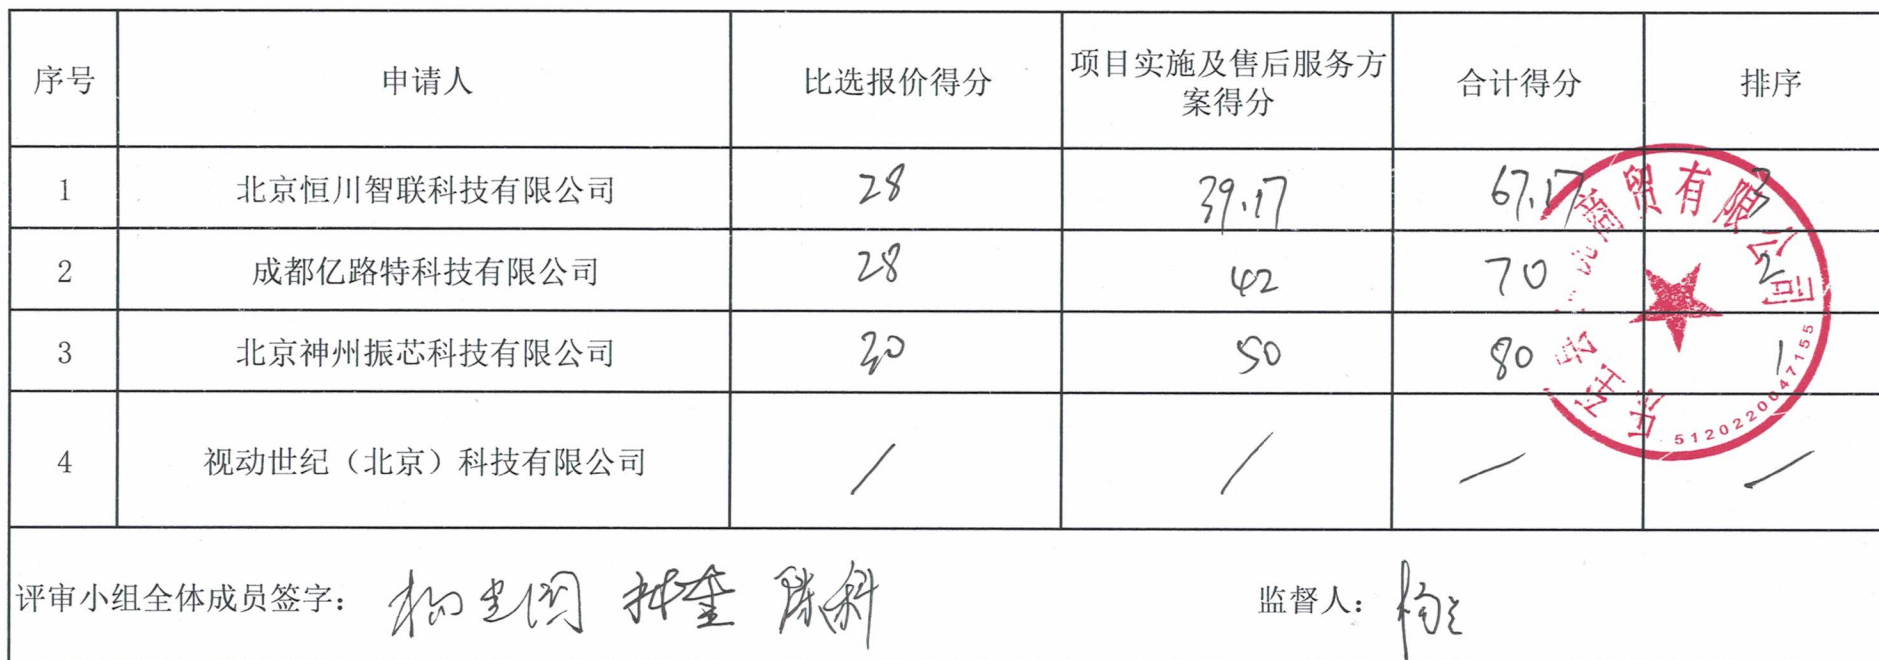 序号 申请人 比选报价得分 项目实施及售后服务方案得分 合计得分 排序
1 北京恒川智联科技有限公司 28 39.17 67.17 3
2 成都亿路特科技有限公司 28 42 70 2
3 北京神州振芯科技有限公司 30 50 80 1
4 视动世纪（北京）科技有限公司 / / — —
评审小组全体成员签字： 监督人：
商贸有限公司
5120220047155